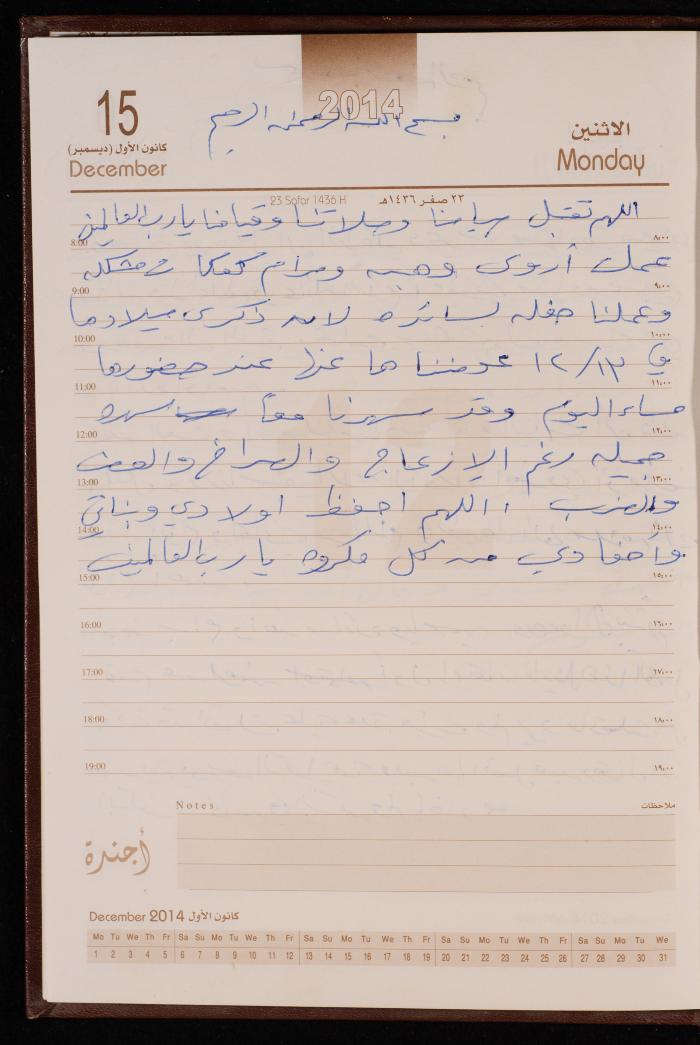 2014
15
كانون الأول (ديسمبر)
December
الاثنين
Monday
بسم الله الرحمن الرحيم
23 Safar 1436 H
٢٣ صفر ١٤٣٦هـ
اللهم تقبل صيامنا وصلاتنا وقيامنا يارب العالمين
8:00 ٨:٠٠
عملت أروى وهبه ومرام كعكا
9:00 ٩:٠٠
وعملنا حفله لسائده لانه ذكرى ميلادها
10:00 ١٠:٠٠
في ١٢/١٣ عوضناها عنها عند حضورها
11:00 ١١:٠٠
مساء اليوم وقد سهرنا معاً سهره
12:00 ١٢:٠٠
جميله رغم الإزعاج والصراخ والعض
13:00 ١٣:٠٠
والضرب ، اللهم احفظ اولادي وبناتي
14:00 ١٤:٠٠
وأحفادي من كل مكروه يارب العالمين
15:00 ١٥:٠٠
16:00 ١٦:٠٠
17:00 ١٧:٠٠
18:00 ١٨:٠٠
19:00 ١٩:٠٠
Notes ملاحظات
أجندة
December 2014 كانون الأول
Mo Tu We Th Fr Sa Su Mo Tu We Th Fr Sa Su Mo Tu We Th Fr Sa Su Mo Tu We Th Fr Sa Su Mo Tu We
1 2 3 4 5 6 7 8 9 10 11 12 13 14 15 16 17 18 19 20 21 22 23 24 25 26 27 28 29 30 31